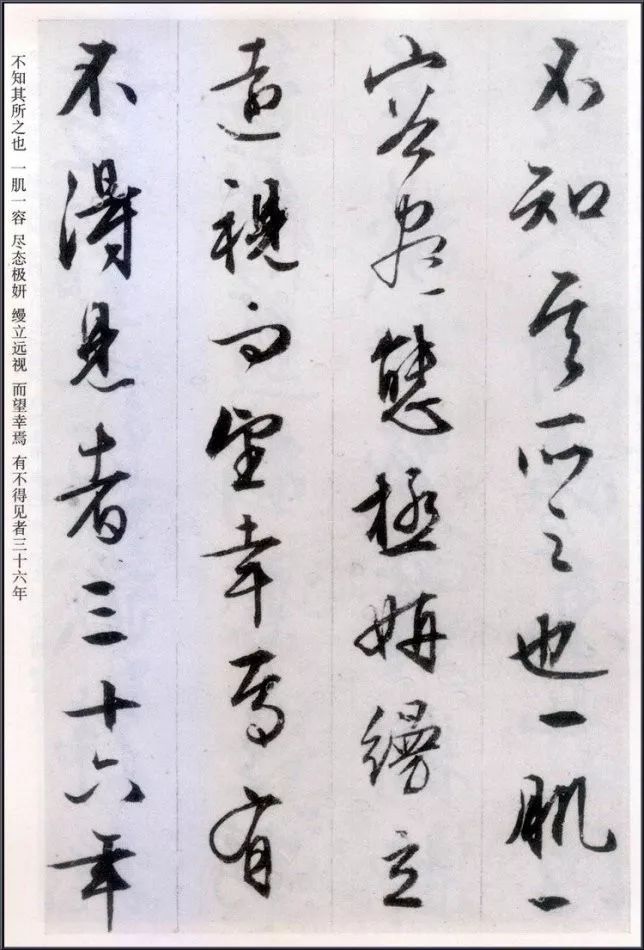 不知其所之也一肌一
容尽态极妍缦立
远视而望幸焉有
不得见者三十六年
不知其所之也 一肌一容 尽态极妍 缦立远视 而望幸焉 有不得见者三十六年